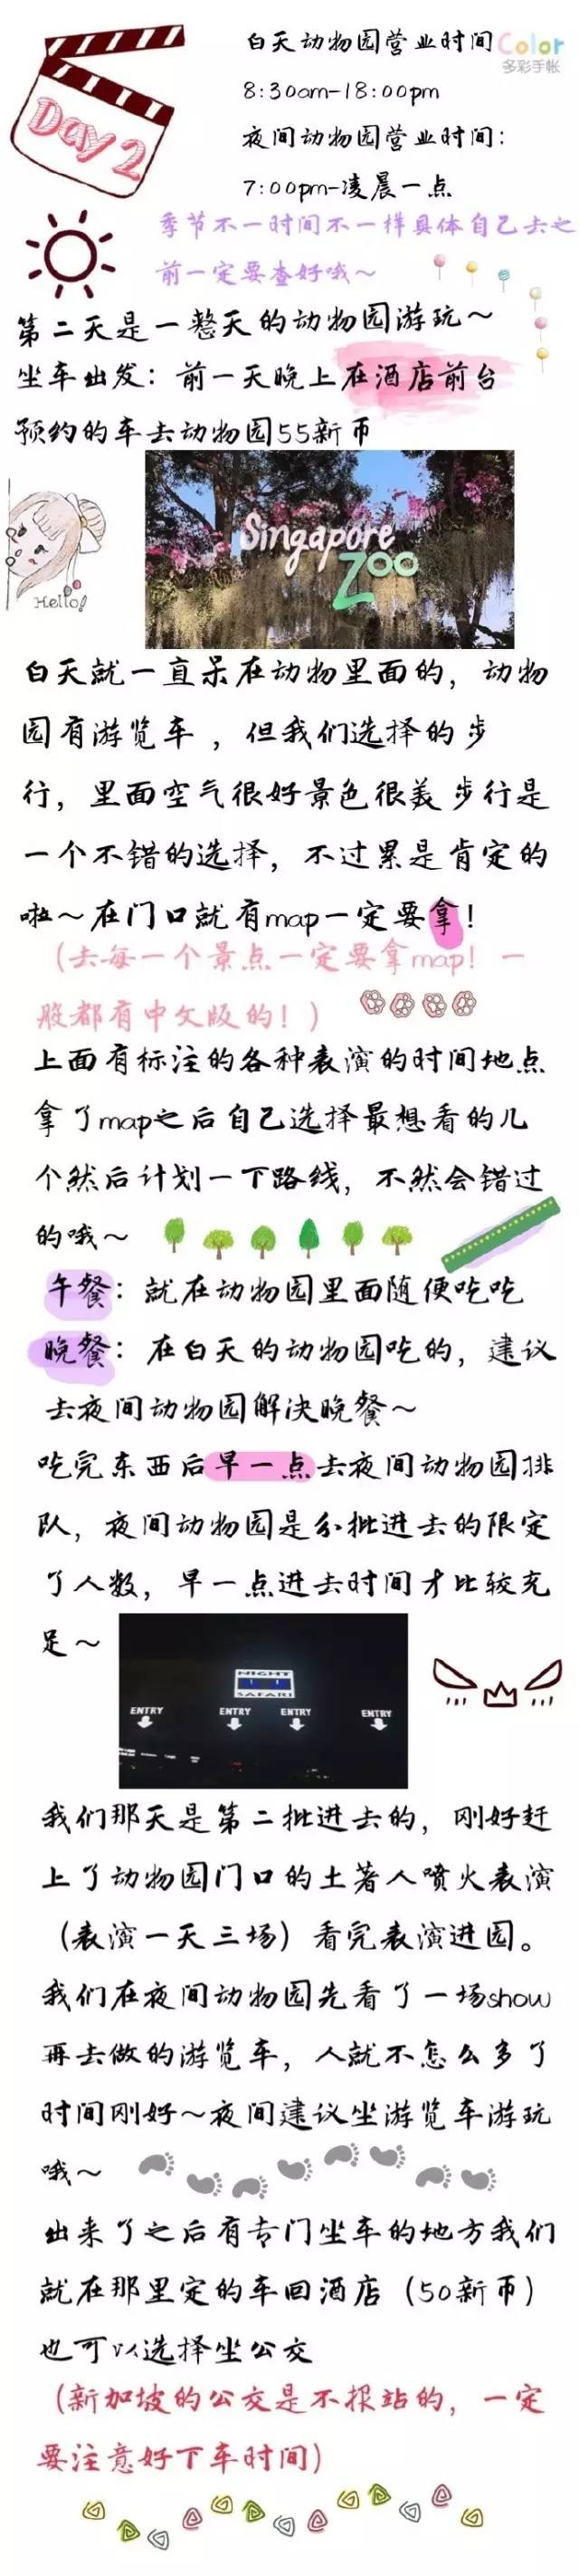 白天动物园营业时间
Color
多彩手帐
8:30am-18:00pm
夜间动物园营业时间：
7:00pm-凌晨一点
Day 2
季节不一时间不一样具体自己去之
前一定要查好哦～
第二天是一整天的动物园游玩～
坐车出发：前一天晚上在酒店前台
预约的车去动物园55新币
Hello!
Singapore
Zoo
白天就一直呆在动物里面的，动物
园有游览车 ，但我们选择的步
行，里面空气很好景色很美步行是
一个不错的选择，不过累是肯定的
啦～在门口就有map一定要拿！
（去每一个景点一定要拿map！一
般都有中文版的！）
上面有标注的各种表演的时间地点
拿了map之后自己选择最想看的几
个然后计划一下路线，不然会错过
的哦～
午餐：就在动物园里面随便吃吃
晚餐：在白天的动物园吃的，建议
去夜间动物园解决晚餐～
吃完东西后早一点去夜间动物园排
队，夜间动物园是分批进去的限定
了人数，早一点进去时间才比较充
足～
NIGHT
SAFARI
ENTRY
ENTRY
ENTRY
ENTRY
我们那天是第二批进去的，刚好赶
上了动物园门口的土著人喷火表演
（表演一天三场）看完表演进园。
我们在夜间动物园先看了一场show
再去做的游览车，人就不怎么多了
时间刚好～夜间建议坐游览车游玩
哦～
出来了之后有专门坐车的地方我们
就在那里定的车回酒店（50新币）
也可以选择坐公交
（新加坡的公交是不报站的，一定
要注意好下车时间）